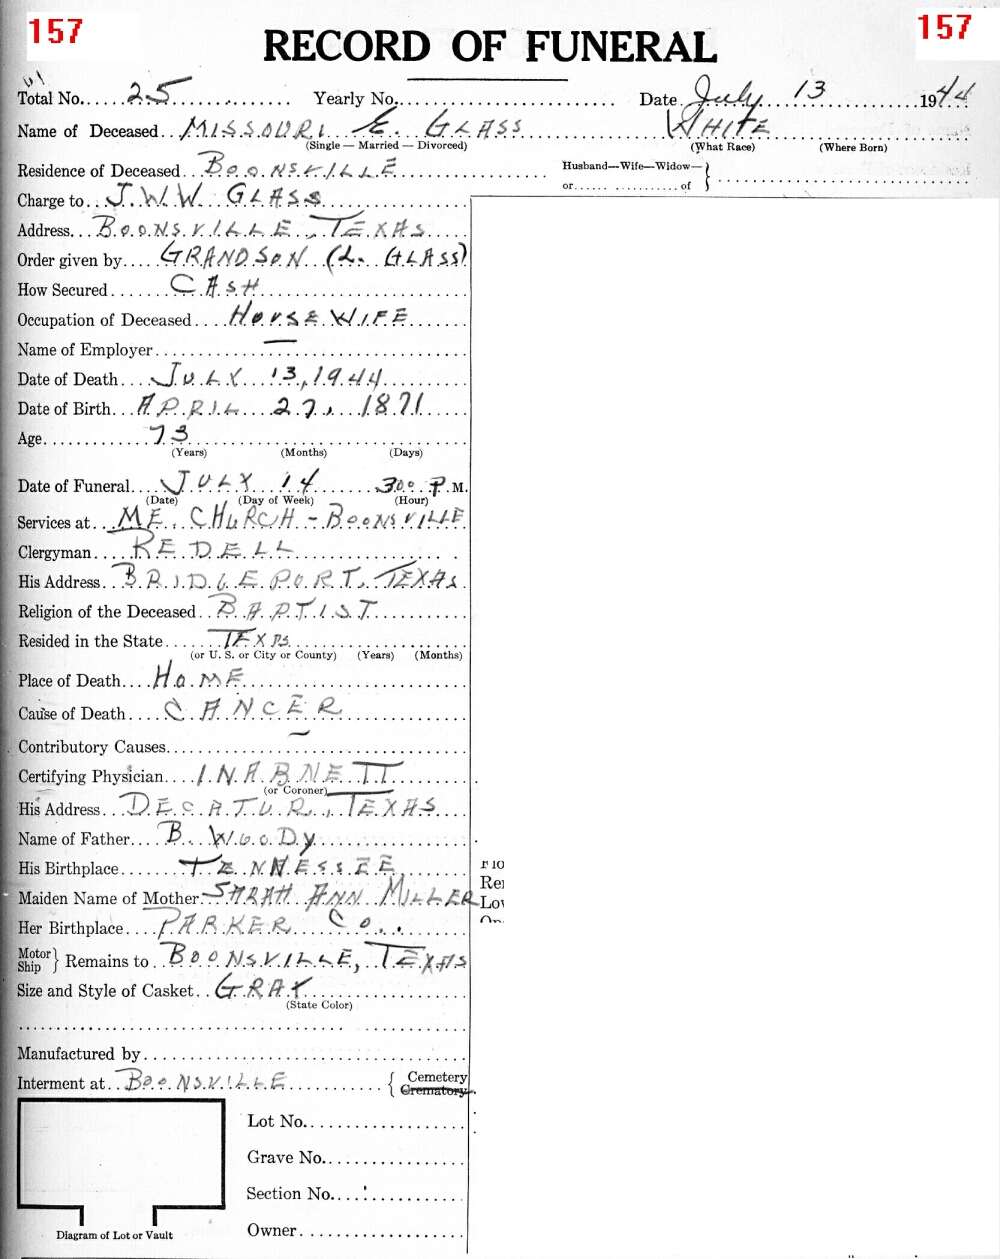 157 157
RECORD OF FUNERAL
Total No. 25 Yearly No. Date July 13 1944
Name of Deceased MISSOURI E. GLASS WHITE
(Single — Married — Divorced) (What Race) (Where Born)
Residence of Deceased BOONSVILLE Husband—Wife—Widow—
or of
Charge to J.W.W. GLASS
Address BOONSVILLE, TEXAS
Order given by GRANDSON (L. GLASS)
How Secured CASH
Occupation of Deceased HOUSEWIFE
Name of Employer —
Date of Death JULY 13, 1944
Date of Birth APRIL 27, 1871
Age 73
(Years) (Months) (Days)
Date of Funeral JULY 14 300 P.M.
(Date) (Day of Week) (Hour)
Services at ME. CHURCH - BOONSVILLE
Clergyman REDELL
His Address BRIDGEPORT, TEXAS
Religion of the Deceased BAPTIST
Resided in the State TEXAS
(or U. S. or City or County) (Years) (Months)
Place of Death HOME
Cause of Death CANCER
Contributory Causes —
Certifying Physician INABNETT
(or Coroner)
His Address DECATUR, TEXAS
Name of Father B. WOODY
His Birthplace TENNESSEE
Maiden Name of Mother SARAH ANN MILLER
Her Birthplace PARKER CO.
Motor Ship } Remains to BOONSVILLE, TEXAS
Size and Style of Casket GRAY
(State Color)
Manufactured by
Interment at BOONSVILLE { Cemetery
Crematory
Lot No.
Grave No.
Section No.
Owner
Diagram of Lot or Vault